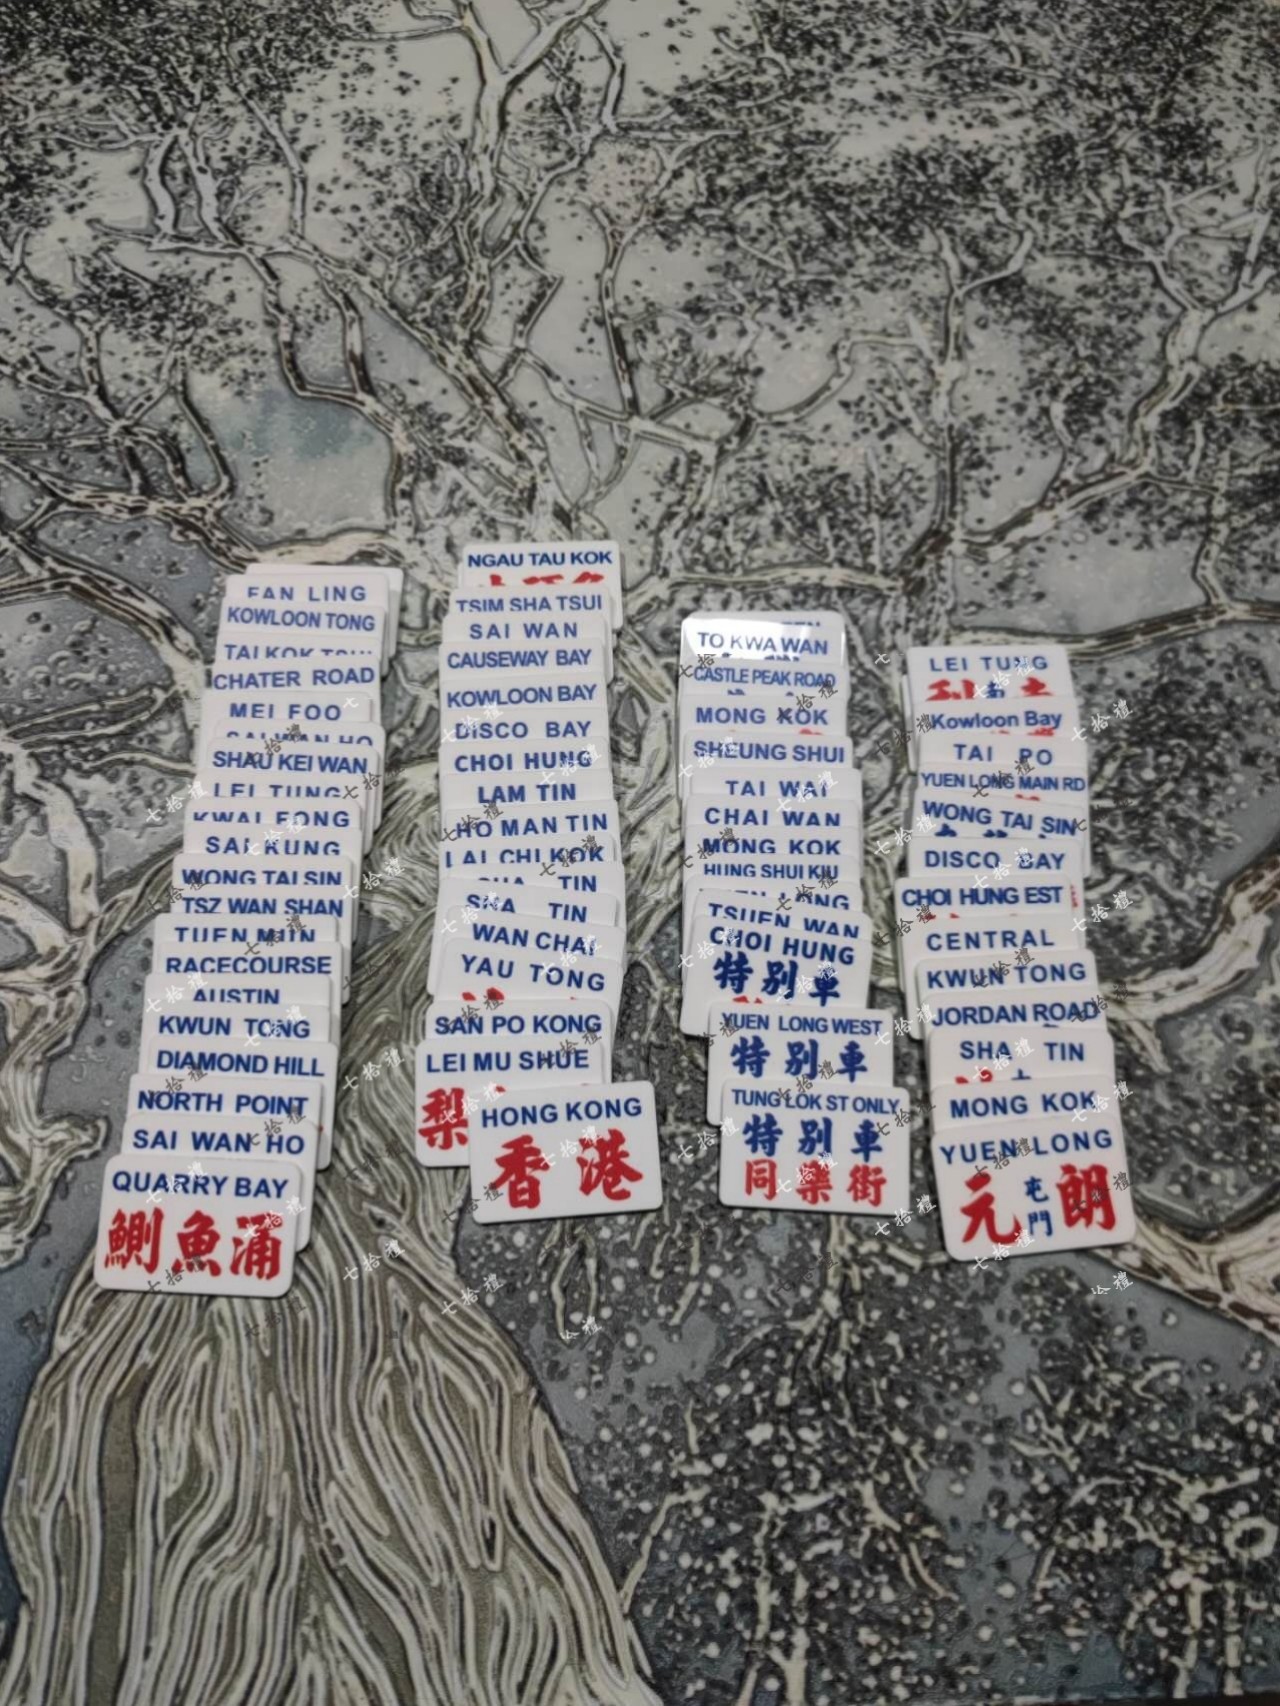 FAN LING
KOWLOON TONG
TAI KOK TSUI
CHATER ROAD
MEI FOO
SAI WAN HO
SHAU KEI WAN
LEI TUNG
KWAI FONG
SAI KUNG
WONG TAI SIN
TSZ WAN SHAN
TUEN MUN
RACECOURSE
AUSTIN
KWUN TONG
DIAMOND HILL
NORTH POINT
SAI WAN HO
QUARRY BAY
鰂魚涌
NGAU TAU KOK
TSIM SHA TSUI
SAI WAN
CAUSEWAY BAY
KOWLOON BAY
DISCO BAY
CHOI HUNG
LAM TIN
HO MAN TIN
LAI CHI KOK
SHA TIN
SHA TIN
WAN CHAI
YAU TONG
SAN PO KONG
LEI MU SHUE
梨
HONG KONG
香港
TO KWA WAN
CASTLE PEAK ROAD
MONG KOK
SHEUNG SHUI
TAI WAI
CHAI WAN
MONG KOK
HUNG SHUI KIU
YUEN LONG
TSUEN WAN
CHOI HUNG
特別車
YUEN LONG WEST
特別車
TUNG LOK ST ONLY
特別車
同樂街
LEI TUNG
Kowloon Bay
TAI PO
YUEN LONG MAIN RD
WONG TAI SIN
DISCO BAY
CHOI HUNG EST
CENTRAL
KWUN TONG
JORDAN ROAD
SHA TIN
MONG KOK
YUEN LONG
元屯門朗
七拾禮